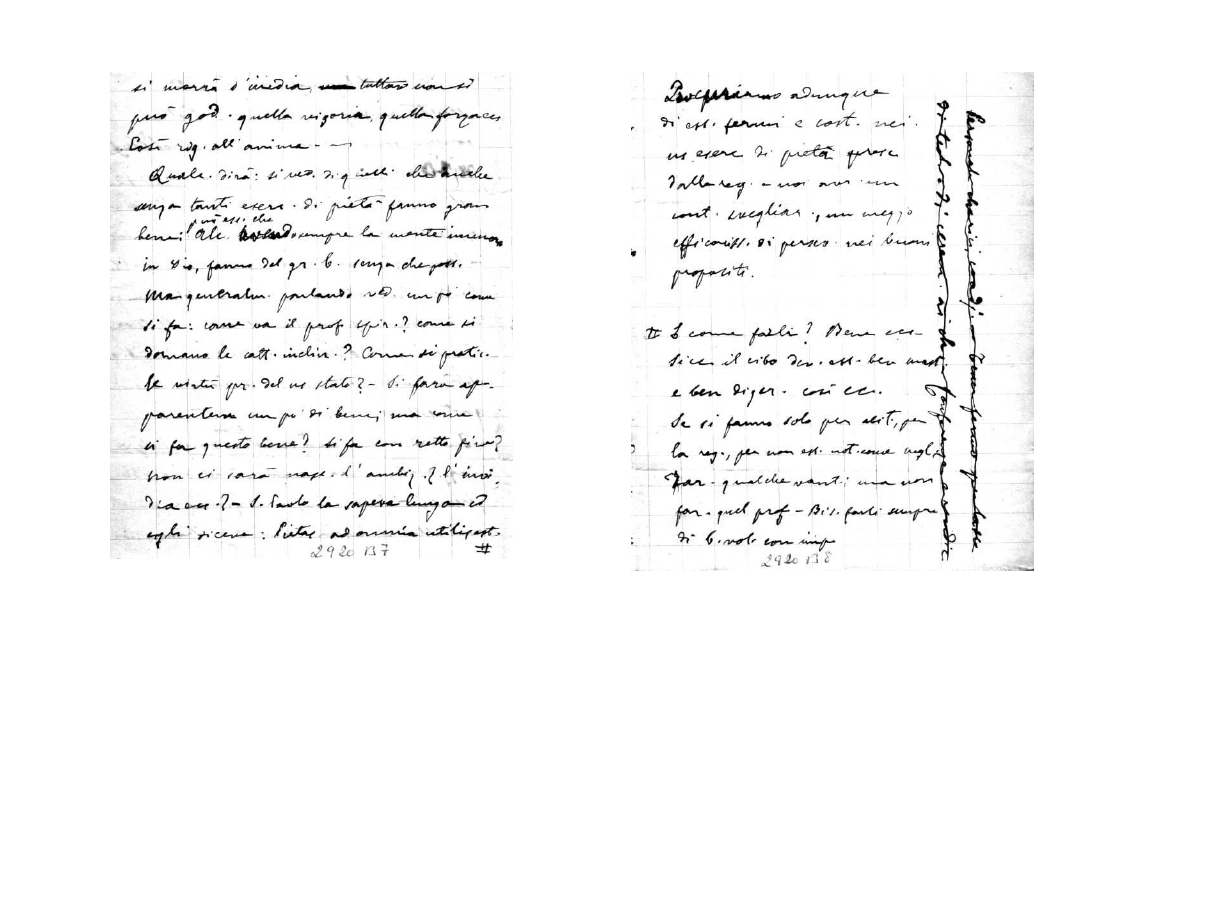 si morrà d'inedia, tuttavia non si
può god. quella vigoria, quella forza ecc
Così rig. all'anima - -
Qualc. dirà: si ved. di quelli che anche
senza tanti eserc. di pietà fanno gran
bene; può ess. che
Alc. avendo sempre la mente immersa
in Dio, fanno del gr. b. senza che poss.
Ma generalm. parlando ved. un pò come
si fa: come va il prof. spir.? come si
domano le catt. inclin.? Come si pratic.
le virtù pr. del ns stato? - Si farà ap-
parentem un pò di bene; ma come
si fa questo bene? si fa con retto fine?
non ci sarà nasc. l'ambiz.? l'invi-
dia ecc.? - S. Paolo la sapeva lunga ed
egli diceva: Pietas ad omnia utilis est.
2920 B7 #
Procuriamo adunque
di ess. fermi e cost. nei
ns eserc di pietà presc
dalla reg. - noi avr. un
cont. svegliar., un mezzo
efficaciss. di persev. nei buoni
propositi.
II E come farli? Bene ecc
Sicc. il cibo dev. ess. ben mast
e ben diger. così ecc.
Se si fanno solo per abit., per
la reg., per non ess. not. come negl.
Far. qualche vant.; ma non
far. quel prof - Bis. farli sempre
di b. vol. con imp
2920 B8